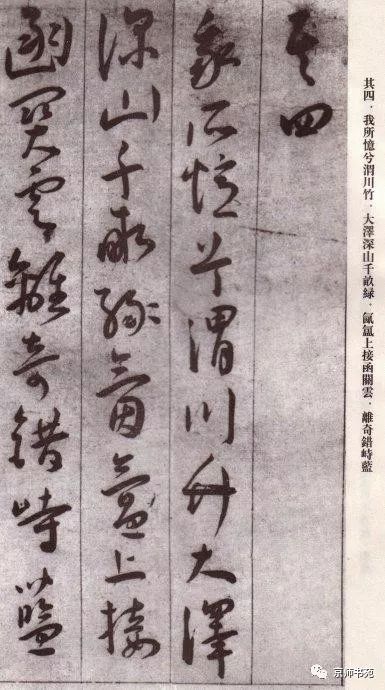 其四．我所憶兮渭川竹．大澤深山千畝緑．氤氳上接函關雲．離奇錯峙藍
其四
我所憶兮渭川竹大澤
深山千畝緑氤氳上接
函關雲離奇錯峙藍
京师书苑